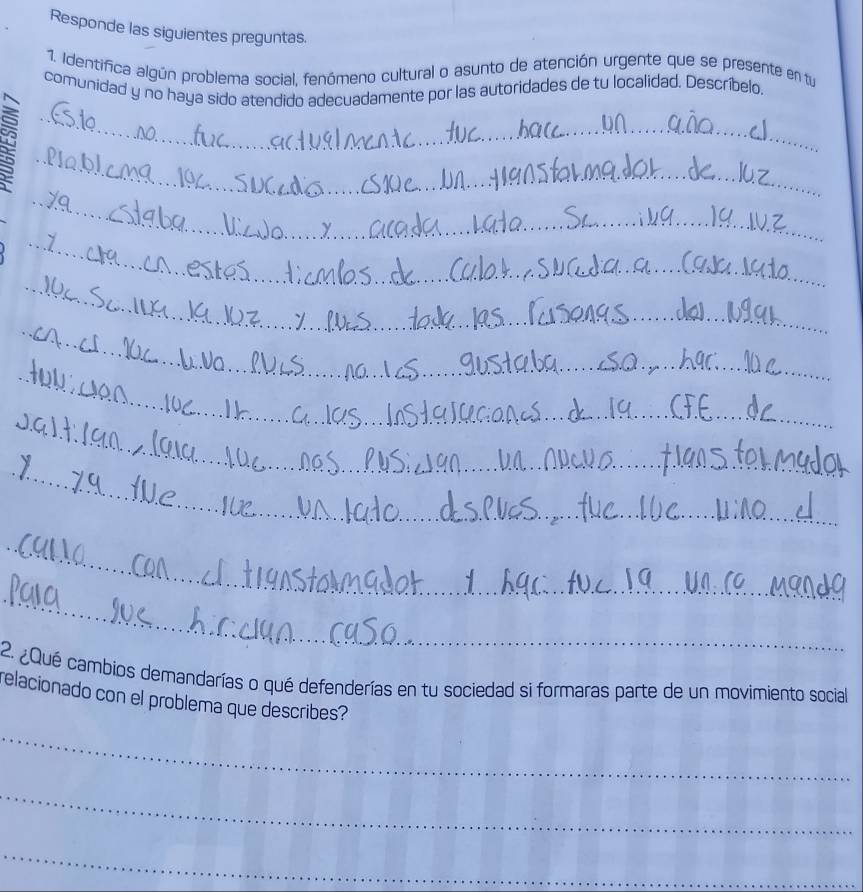 Responde las siguientes preguntas.
1. Identifica algún problema social, fenómeno cultural o asunto de atención urgente que se presente en tu
comunidad y no haya sido atendido adecuadamente por las autoridades de tu localidad. Descríbelo.
PROGRESIÓN 7
Esto no fue actualmente fue hace un año el
problema que sucedio es que un transformador de luz
ya estaba viejo y acada rato se iva la luz
y era en estos tiempos de calor, suceda a cada rato
que se iva la luz y pues toda las personas del lugar
en el que vivo pues no les gustaba eso, hac que
tuvieron que ir a las instalaciones de la CFE de
, para que nos pusieran un nuevo transformador
y ya fue que un rato despues, fue que vino el
carro con el transformador y hac fue la unica manda
para que hicieran caso.
2. ¿Qué cambios demandarías o qué defenderías en tu sociedad si formaras parte de un movimiento social
relacionado con el problema que describes?